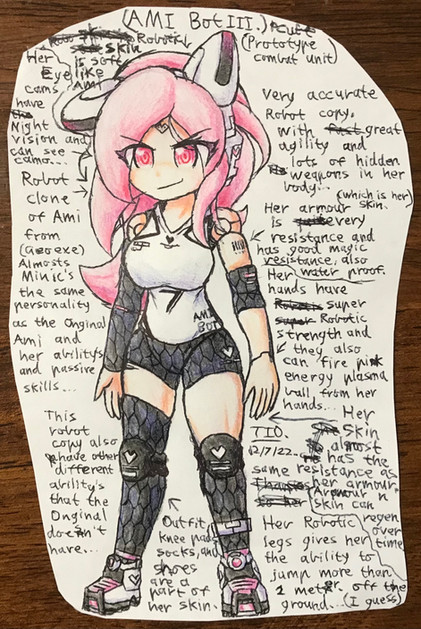 (AMI Bot III.)
(Prototype
combat unit)
Robotic
skin
is soft
like
AMI
Her
Eye
cams
have
Night
vision and
can see
camo...
Robot
clone
of Ami
from
(Geo exe)
Almosts
Minic's
the same
personality
as the Original
Ami and
her ability's
and passive
skills...
This
robot
copy also
have other
different
ability's
that the
Original
doesn't
have...
Very accurate
Robot copy,
with great
agility and
lots of hidden
weapons in her
body...
(which is her)
skin.
Her armour
is very
resistance and
has good magic
resistance, also
Her water proof.
hands have
super
Robotic
strength and
they also
can fire pink
energy plasma
ball from her
hands...
Her
Skin
almost
has the
same resistance as
her armour.
Armour n
skin can
regen
over
time
Her Robotic
legs gives her
the ability to
jump more than
1 meter off the
ground...(I guess)
TIO.
12/7/22.
Outfit,
knee pads
socks, and
shoes
are a
part of
her skin.
AMI
BOT